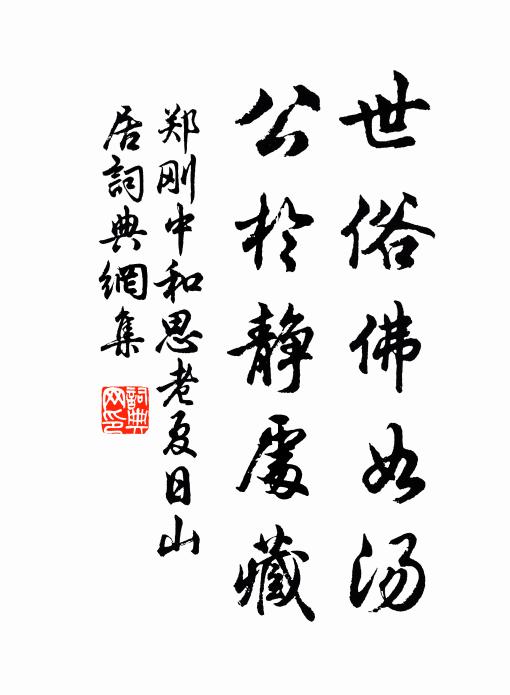 世俗佛如汤
公於静處藏
郑刚中和思老夏日山
居詞典網集
詞典网印